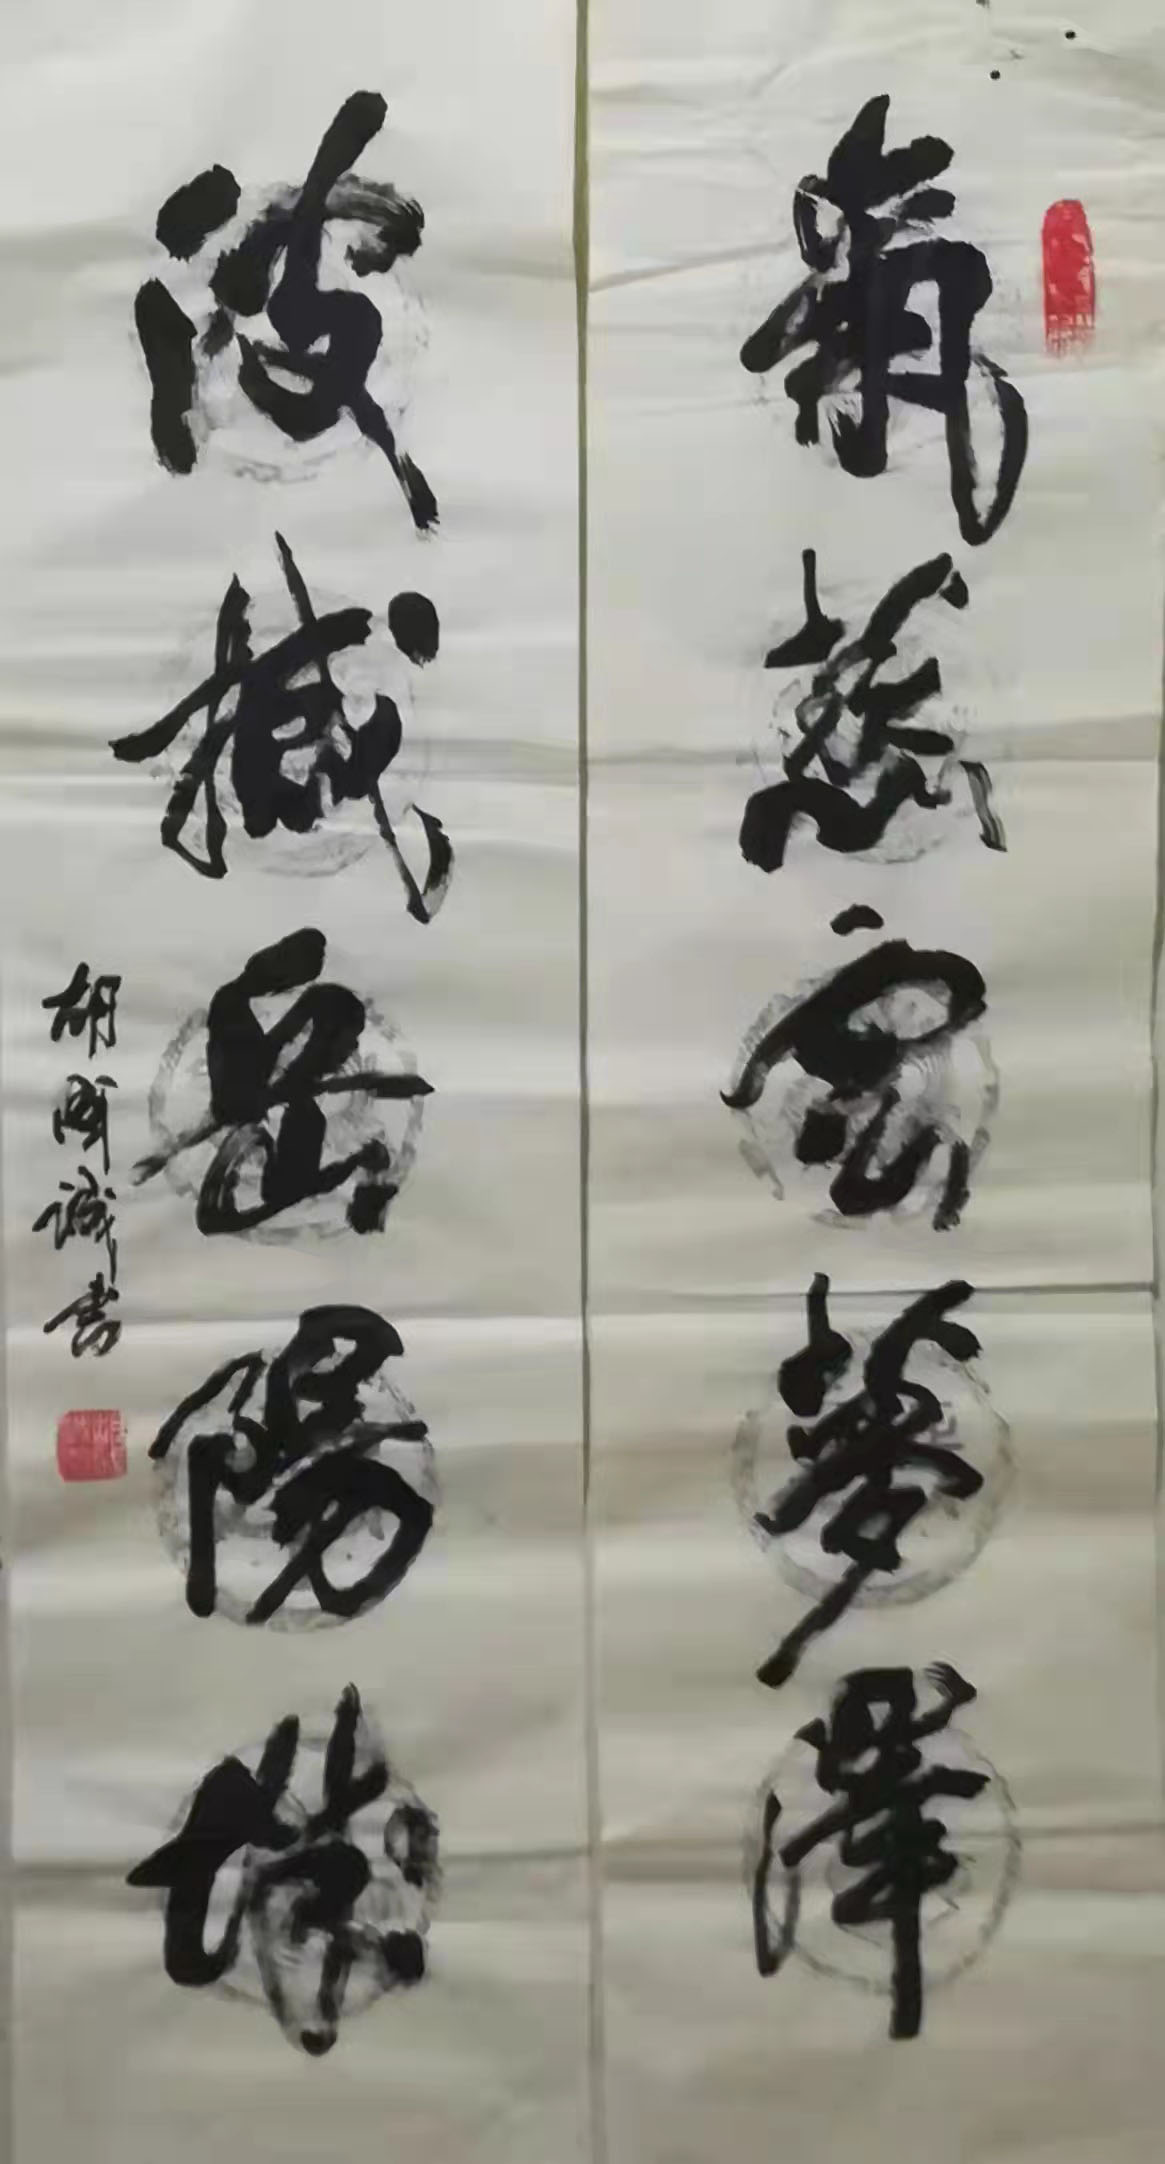 氣蒸雲夢澤
波撼岳陽城
胡國誠書